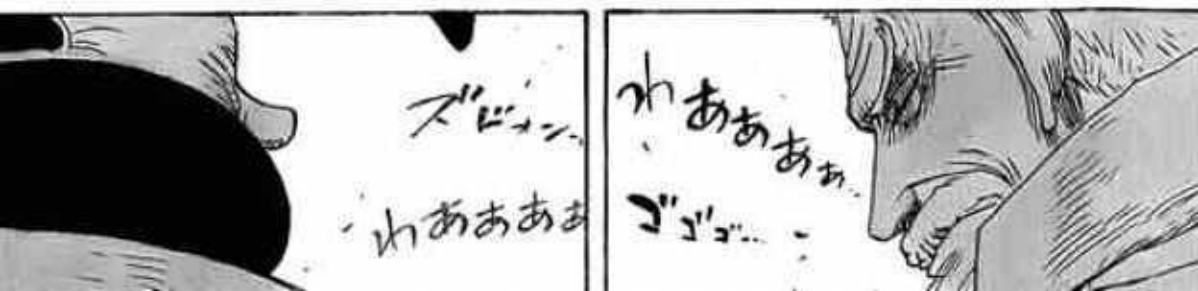 わあああぁ…
ゴゴゴ…
ズビュン…
わああああ